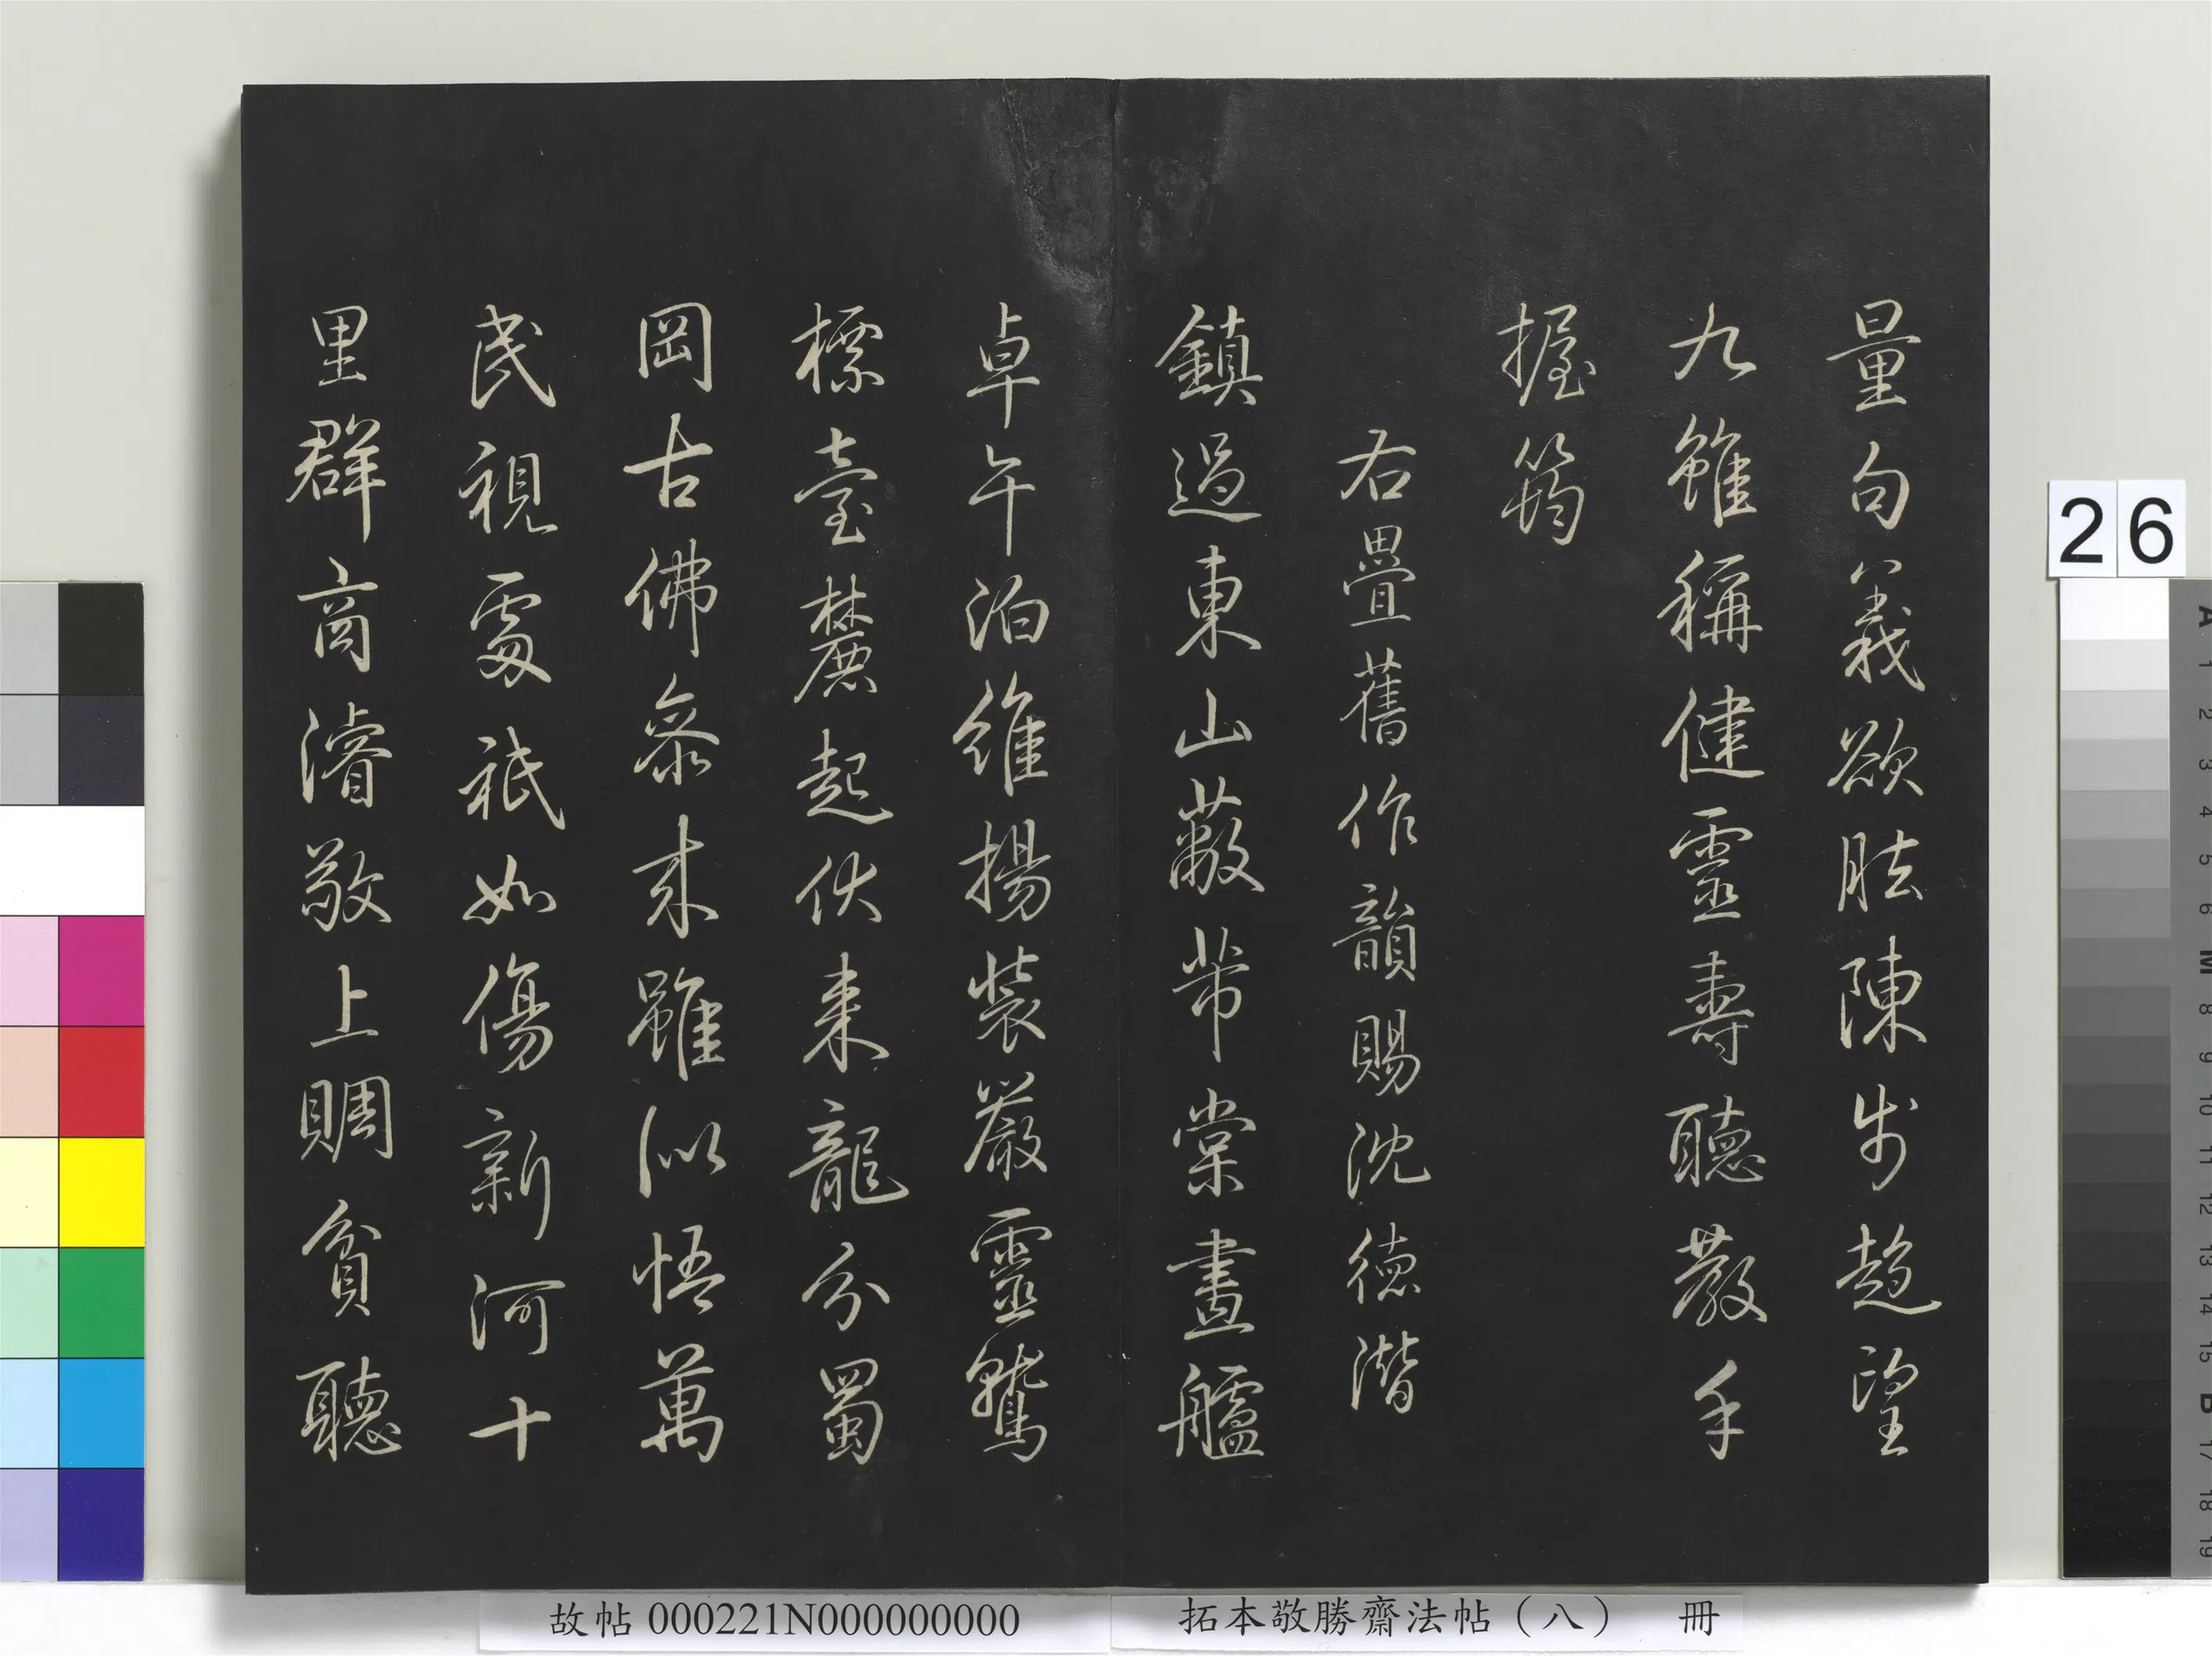 量句義欲胠陳步趨望
九雖稱健靈壽聽教手
握筠
右疊舊作韻賜沈德潛
鎮過東山蔽芾棠畫艫
卓午泊維揚裝嚴靈鷲
標臺麓起伏來龍分蜀
岡古佛參來雖似悟萬
民視處祇如傷新河十
里群商濬敬上賙貧聽
26
故帖 000221N000000000
拓本敬勝齋法帖（八） 冊
A 1 2 3 4 5 6 M 8 9 10 11 12 13 14 15 B 17 18 19